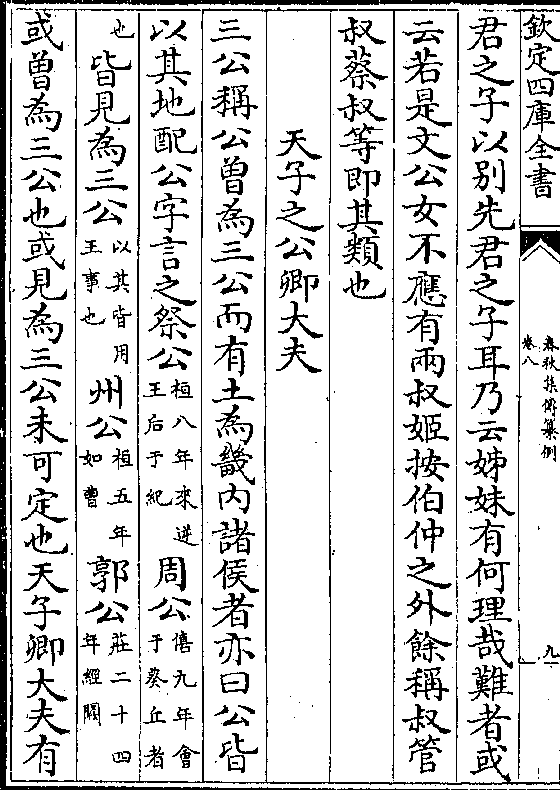 欽定四庫全書
春秋集傳纂例
卷八
九
君之子以別先君之子耳乃云姊妹有何理哉難者或
云若是文公女不應有兩叔姬按伯仲之外餘稱叔管
叔蔡叔等即其類也
天子之公卿大夫
三公稱公曾為三公而有土為畿内諸侯者亦曰公皆
以其地配公字言之祭公桓八年來逆王后于紀周公僖九年會于葵丘者
也皆見為三公以其皆用王事也州公桓五年如曹郭公莊二十四年經闕
或曽為三公也或見為三公未可定也天子卿大夫有